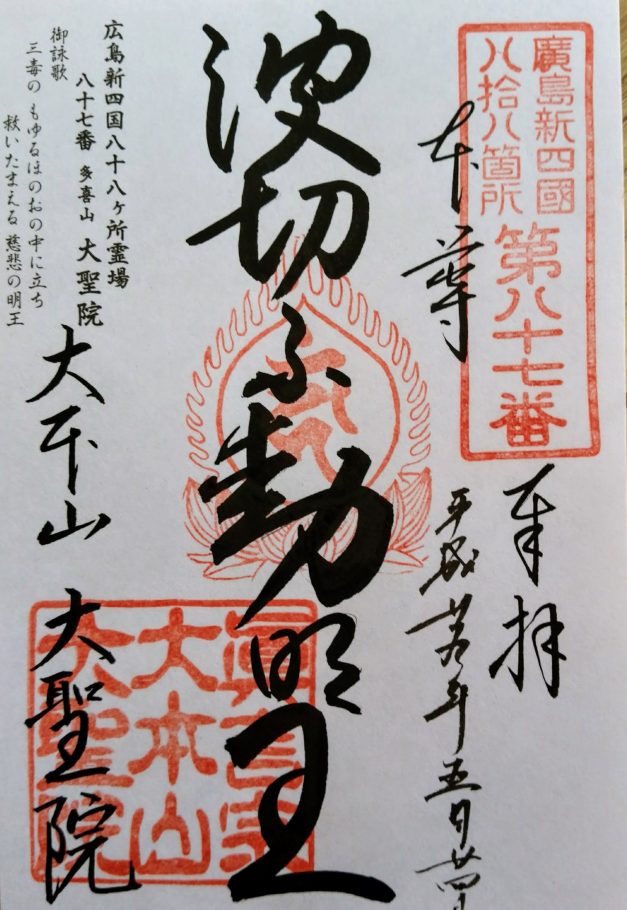 廣島新四國
八拾八箇所
第八十七番
奉拝
本尊
平成廿九年五月廿四日
波切不動明王
広島新四国八十八ヶ所霊場
八十七番 多喜山 大聖院
御詠歌
三毒の もゆるほのおの中に立ち
救いたまえる 慈悲の明王
大本山 大聖院
眞言宗
大本山
大聖院